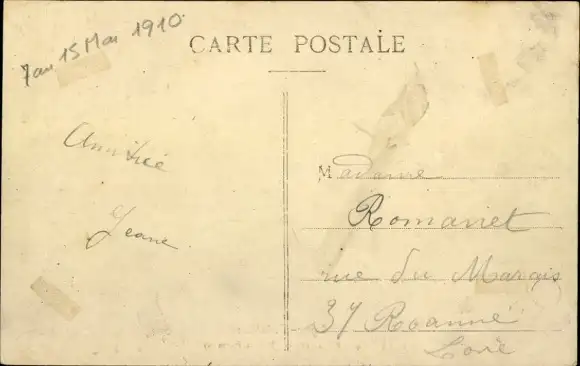 15 Mai 1910
CARTE POSTALE
Amitié
Jeane
Madame
Romanet
rue du Marais
37 Roanne
Loire